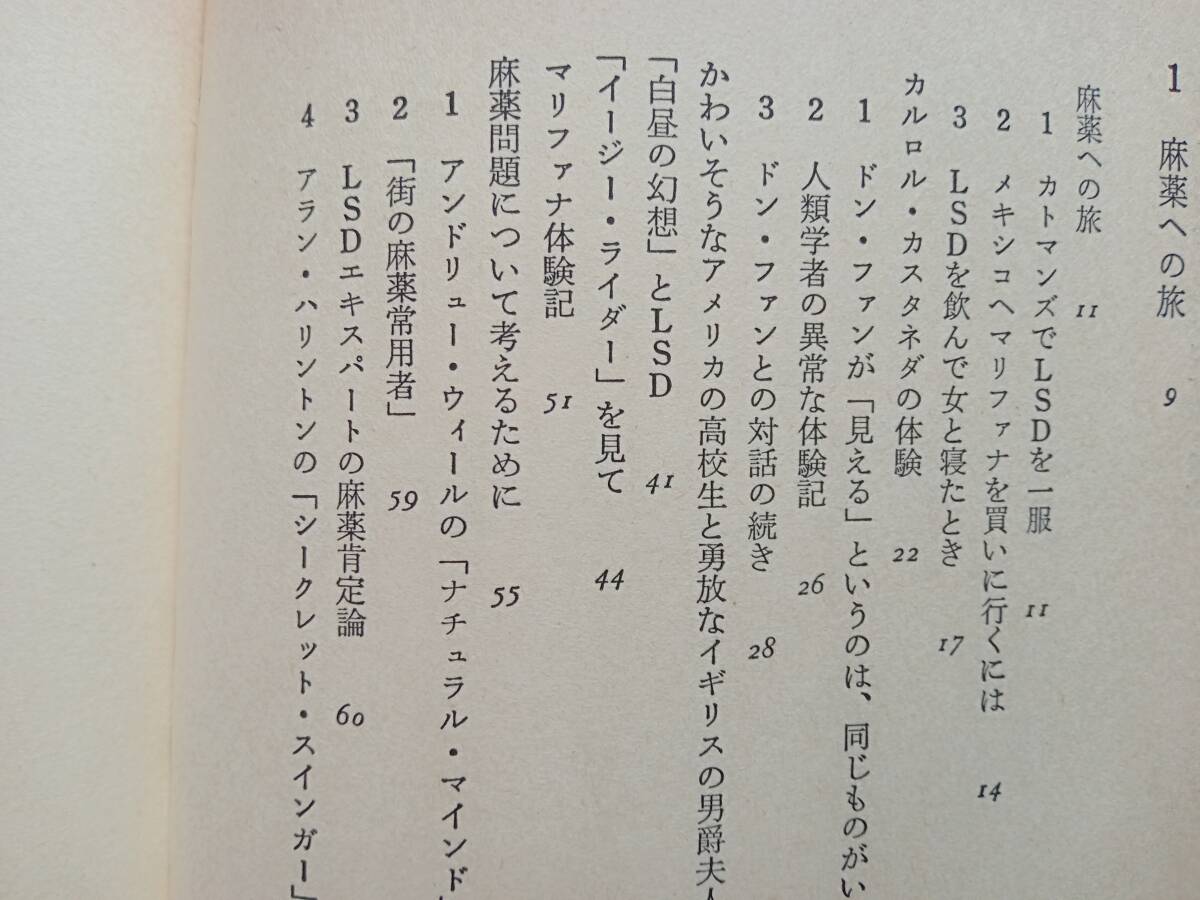 1 麻薬への旅 9
麻薬への旅 11
1 カトマンズでLSDを一服 11
2 メキシコへマリファナを買いに行くには 14
3 LSDを飲んで女と寝たとき 17
カルロル・カスタネダの体験 22
1 ドン・ファンが「見える」というのは、同じものがい
2 人類学者の異常な体験記 26
3 ドン・ファンとの対話の続き 28
かわいそうなアメリカの高校生と勇放なイギリスの男爵夫人
「白昼の幻想」とLSD 41
「イージー・ライダー」を見て 44
マリファナ体験記 51
麻薬問題について考えるために 55
1 アンドリュー・ウィールの「ナチュラル・マインド」
2 「街の麻薬常用者」 59
3 LSDエキスパートの麻薬肯定論 60
4 アラン・ハリントンの「シークレット・スインガー」